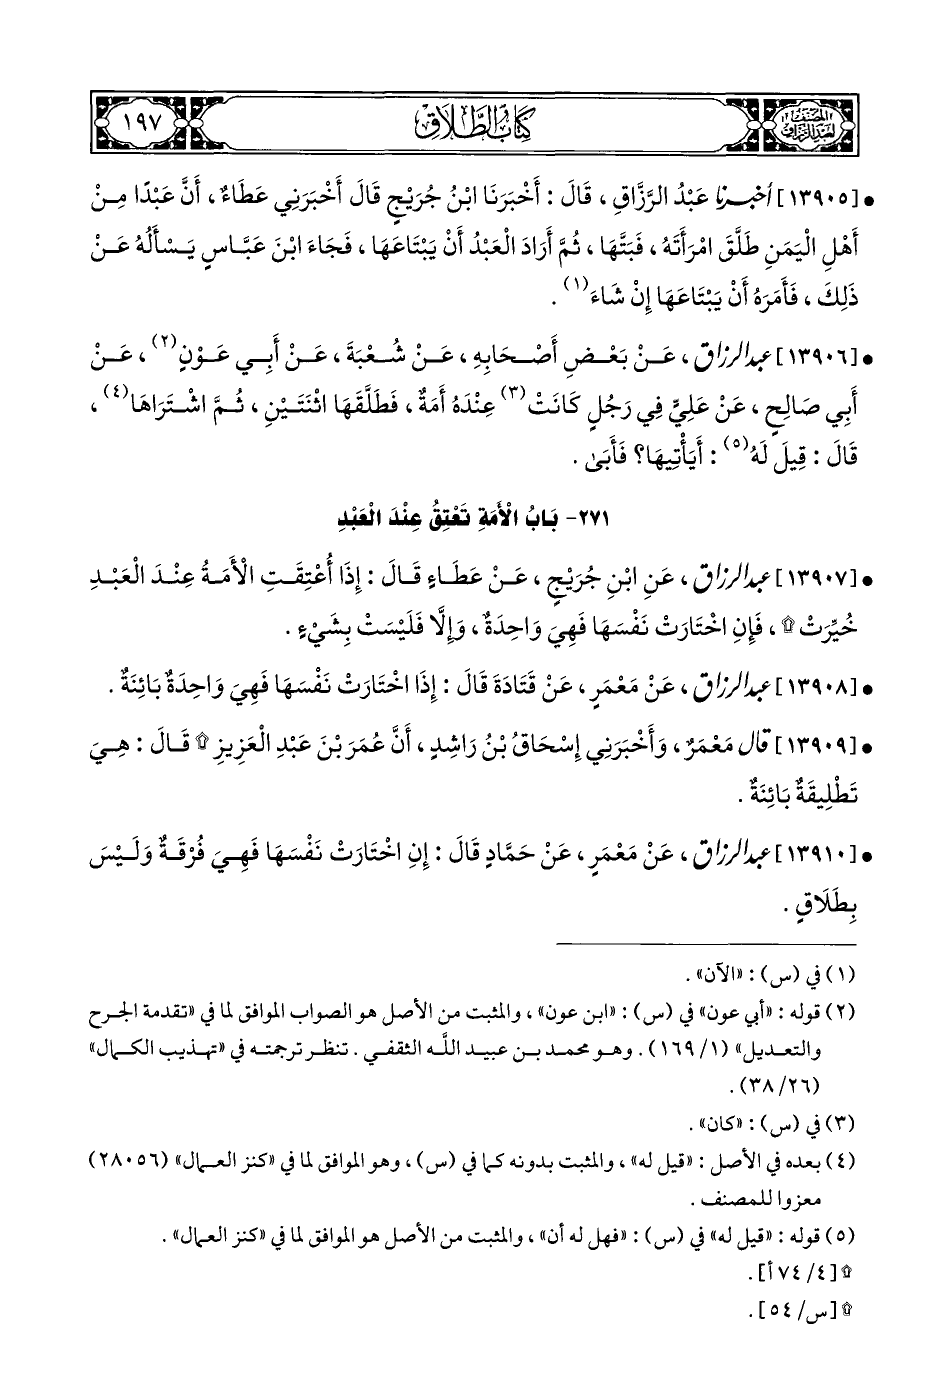 المصنف
لعبد الرزاق
كتاب الطلاق
١٩٧
• [١٣٩٠٥] أخبرنا عَبْدُ الرَّزَّاقِ ، قَالَ : أَخْبَرَنَا ابْنُ جُرَيْجٍ قَالَ أَخْبَرَنِي عَطَاءٌ ، أَنَّ عَبْدًا مِنْ
أَهْلِ الْيَمَنِ طَلَّقَ امْرَأَتَهُ ، فَبَتَّهَا ، ثُمَّ أَرَادَ الْعَبْدُ أَنْ يَبْتَاعَهَا ، فَجَاءَ ابْنَ عَبَّاسٍ يَسْأَلُهُ عَنْ
ذَلِكَ ، فَأَمَرَهُ أَنْ يَبْتَاعَهَا إِنْ شَاءَ(١) .
• [١٣٩٠٦] عبد الرزاق ، عَنْ بَعْضِ أَصْحَابِهِ ، عَنْ شُعْبَةَ ، عَنْ أَبِي عَوْنٍ(٢) ، عَنْ
أَبِي صَالِحٍ ، عَنْ عَلِيٍّ فِي رَجُلٍ كَانَتْ(٣) عِنْدَهُ أَمَةٌ ، فَطَلَّقَهَا اثْنَتَيْنِ ، ثُمَّ اشْتَرَاهَا(٤) ،
قَالَ : قِيلَ لَهُ(٥) : أَيَأْتِيهَا؟ فَأَبَىٰ .
٢٧١- بَابُ الْأَمَةِ تَعْتِقُ عِنْدَ الْعَبْدِ
• [١٣٩٠٧] عبد الرزاق ، عَنِ ابْنِ جُرَيْجٍ ، عَنْ عَطَاءٍ قَالَ : إِذَا أُعْتِقَتِ الْأَمَةُ عِنْدَ الْعَبْدِ
خُيِّرَتْ ۩ ، فَإِنِ اخْتَارَتْ نَفْسَهَا فَهِيَ وَاحِدَةٌ ، وَإِلَّا فَلَيْسَتْ بِشَيْءٍ .
• [١٣٩٠٨] عبد الرزاق ، عَنْ مَعْمَرٍ ، عَنْ قَتَادَةَ قَالَ : إِذَا اخْتَارَتْ نَفْسَهَا فَهِيَ وَاحِدَةٌ بَائِنَةٌ .
• [١٣٩٠٩] قال مَعْمَرٌ ، وَأَخْبَرَنِي إِسْحَاقُ بْنُ رَاشِدٍ ، أَنَّ عُمَرَ بْنَ عَبْدِ الْعَزِيزِ ۩ قَالَ : هِيَ
تَطْلِيقَةٌ بَائِنَةٌ .
• [١٣٩١٠] عبد الرزاق ، عَنْ مَعْمَرٍ ، عَنْ حَمَّادٍ قَالَ : إِنِ اخْتَارَتْ نَفْسَهَا فَهِيَ فُرْقَةٌ وَلَيْسَ
بِطَلَاقٍ .
(١) في (س) : «الآن» .
(٢) قوله : «أبي عون» في (س) : «ابن عون» ، والمثبت من الأصل هو الصواب الموافق لما في «تقدمة الجرح
والتعديل» (١/ ١٦٩) . وهو محمد بن عبيد اللَّه الثقفي . تنظر ترجمته في «تهذيب الكمال»
(٢٦/ ٣٨) .
(٣) في (س) : «كان» .
(٤) بعده في الأصل : «قيل له» ، والمثبت بدونه كما في (س) ، وهو الموافق لما في «كنز العمال» (٢٨٠٥٦)
معزوا للمصنف .
(٥) قوله : «قيل له» في (س) : «فهل له أن» ، والمثبت من الأصل هو الموافق لما في «كنز العمال» .
۩ [٤/ ٧٤ أ] .
۩ [س/ ٥٤] .